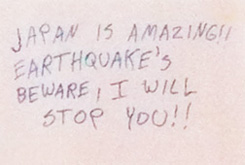 JAPAN IS AMAZING!!
EARTHQUAKE's
BEWARE, I WILL
STOP YOU!!